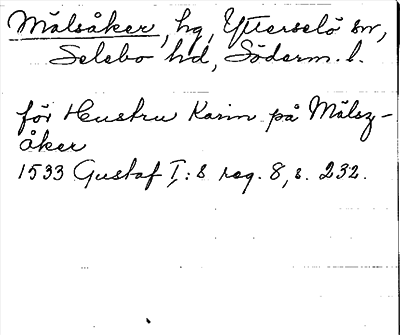 Målsåker, hg, Ytterselö sn,
Selebo hd, Söderm. l.
för Hustru Karin på Målsz-
åker
1533 Gustaf I:s reg. 8, s. 232.